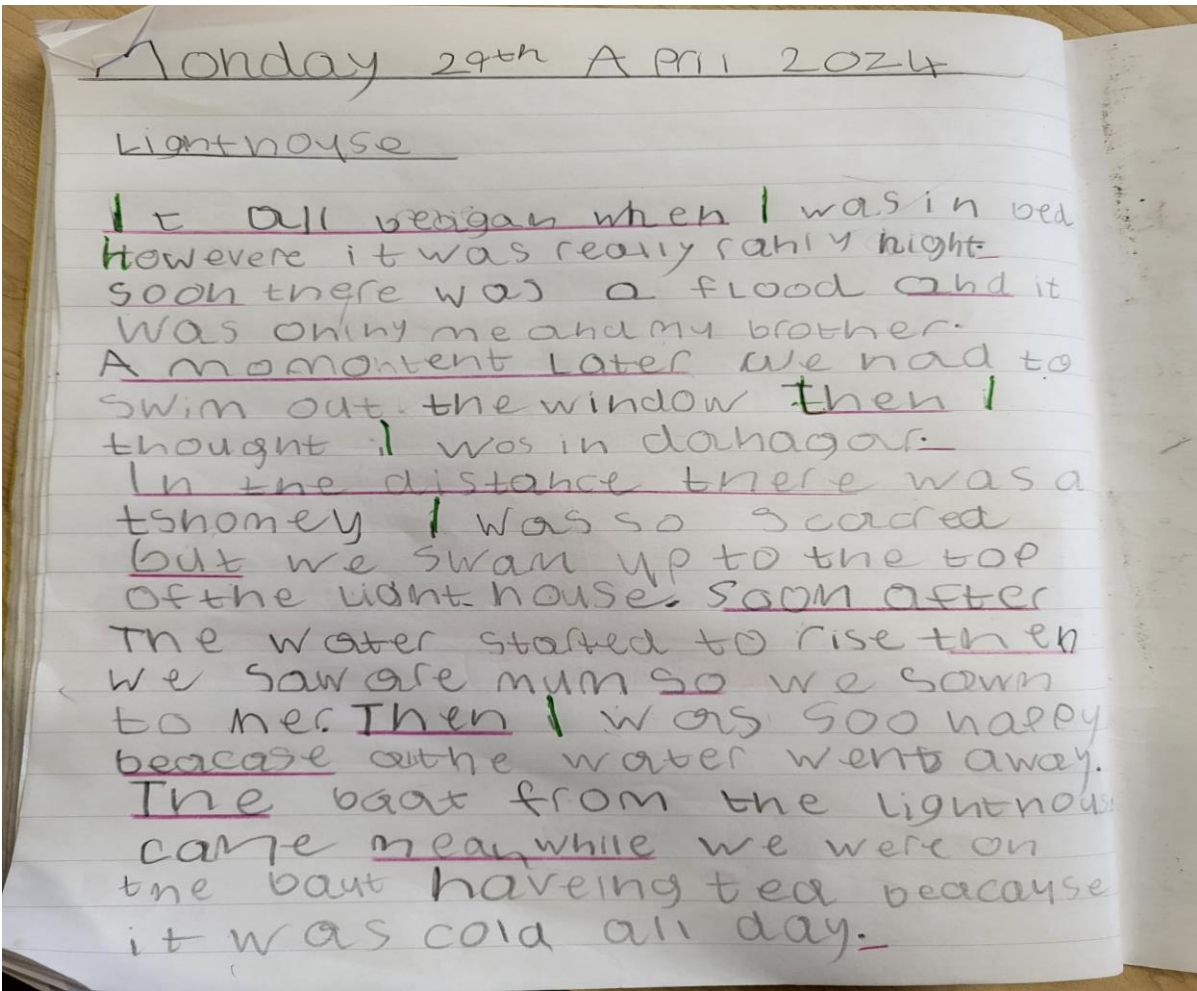 Monday 29th April 2024
Lighthouse
It all beagan when I was in bed
Howevere it was really rahly night.
soon there was a flood and it
was onlny me and my brother.
A momontent Later we had to
swim out the window then I
thought I was in dahagar.
In the distance there was a
tshomey I was so scacred
but we swam up to the top
of the light house. Soon after
The water started to rise then
we saw are mum so we sawm
to her. Then I was soo happy
beacase the water went away.
The baat from the Lighthous
came meanwhile we were on
the baut haveing tea beacayse
it was cold all day.